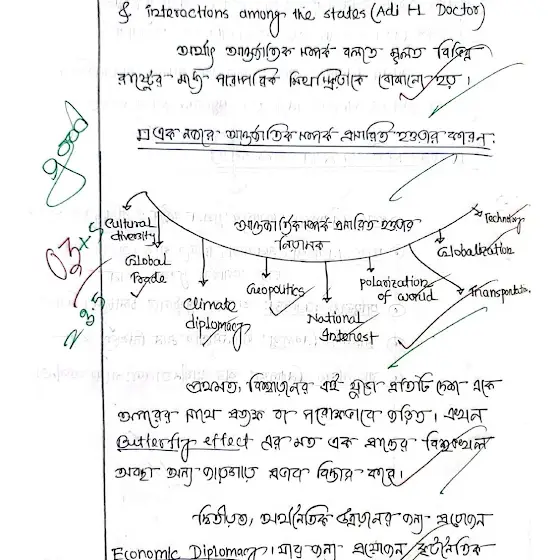 & interactions among the states (Adi H. Doctor)
অর্থাৎ আন্তর্জাতিক সম্পর্ক বলতে মূলত বিভিন্ন
রাষ্ট্রের মধ্যে পারস্পরিক মিথস্ক্রিয়াকে বোঝানো হয়।
good
এক নজরে আন্তর্জাতিক সম্পর্ক প্রসারিত হওয়ার কারন:
Cultural diversity
আন্তর্জাতিক সম্পর্ক প্রসারিত হওয়ার
নিয়ামক
Technology
Globalization
Global Trade
Climate diplomacy
Geopolitics
National Interest
polarization of world
Transportation
প্রথমত, বিশ্বায়নের এই যুগে প্রতিটি দেশ একে
অপরের সাথে প্রত্যক্ষ বা পরোক্ষভাবে জড়িত। এখন
Butterfly effect এর মত এক প্রান্তের বিশৃঙ্খল
অবস্থা অন্য প্রভাব বিস্তার করে।
দ্বিতীয়ত, অর্থনৈতিক উন্নয়নের জন্য প্রয়োজন
Economic Diplomacy। যার জন্য প্রয়োজন কূটনৈতিক